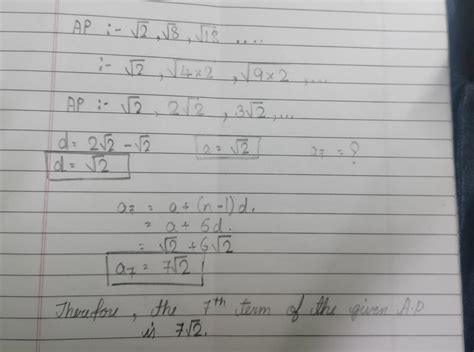 AP :- √2, √8, √18 ....
:- √2, √4×2, √9×2, ...
AP :- √2, 2√2, 3√2, ...
d = 2√2 - √2 a = √2 a7 = ?
d = √2
a7 = a + (n-1)d.
= a + 6d.
= √2 + 6√2
a7 = 7√2
Therefore, the 7th term of the given A.P
is 7√2.